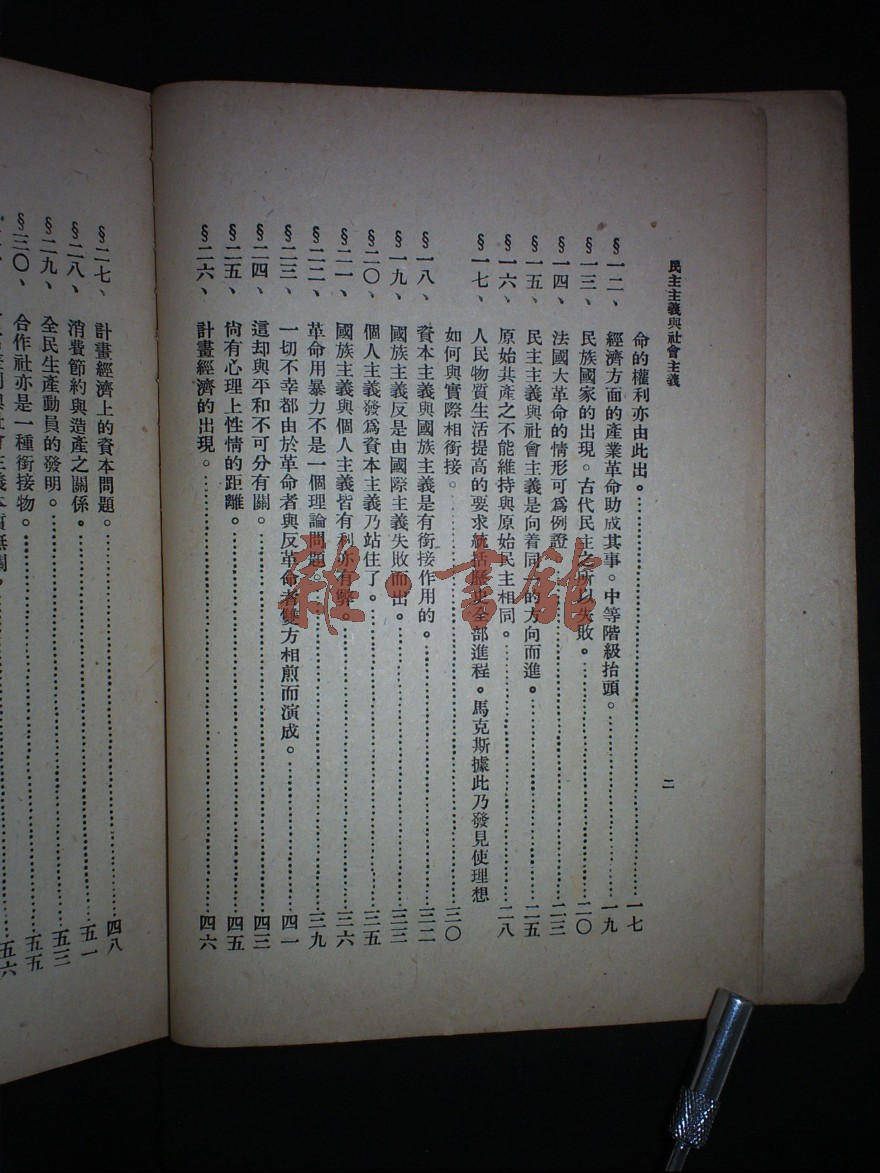 民主主義與社會主義
二
命的權利亦由此出。……一七
§一二、經濟方面的產業革命助成其事。中等階級抬頭。……一九
§一三、民族國家的出現。古代民主之所以失敗。……二〇
§一四、法國大革命的情形可爲例證……二三
§一五、民主主義與社會主義是向着同一的方向而進。……二五
§一六、原始共產之不能維持與原始民主相同。……二八
§一七、人民物質生活提高的要求統括歷史全部進程。馬克斯據此乃發見使理想
如何與實際相銜接。……三〇
§一八、資本主義與國族主義是有銜接作用的。……三二
§一九、國族主義反是由國際主義失敗而出。……三三
§二〇、個人主義發爲資本主義乃站住了。……三五
§二一、國族主義與個人主義皆有利亦有弊。……三六
§二二、革命用暴力不是一個理論問題。……三九
§二三、一切不幸都由於革命者與反革命者雙方相煎而演成。……四一
§二四、這却與平和不可分有關。……四三
§二五、尙有心理上性情的距離。……四五
§二六、計畫經濟的出現。……四六
§二七、計畫經濟上的資本問題。……四八
§二八、消費節約與造產之關係。……五一
§二九、全民生產動員的發明。……五三
§三〇、合作社亦是一種銜接物。……五五
五六
雜·書館